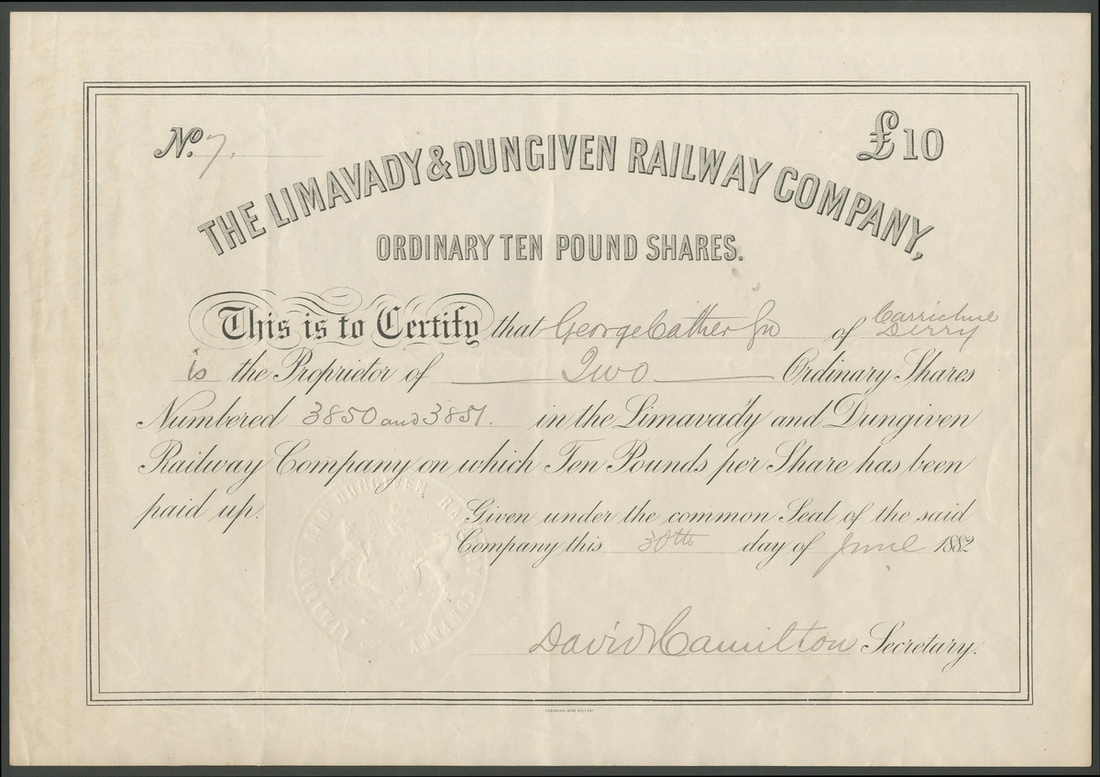 No. 7.
£10
THE LIMAVADY & DUNGIVEN RAILWAY COMPANY,
ORDINARY TEN POUND SHARES.
This is to Certify that George Cather Jn of Carrichue Derry
is the Proprietor of Two Ordinary Shares
Numbered 3850 and 3851. in the Limavady and Dungiven
Railway Company on which Ten Pounds per Share has been
paid up.
Given under the common Seal of the said
Company this 30th day of June 1882
David Hamilton Secretary.
LIMAVADY AND DUNGIVEN RAILWAY COMPANY